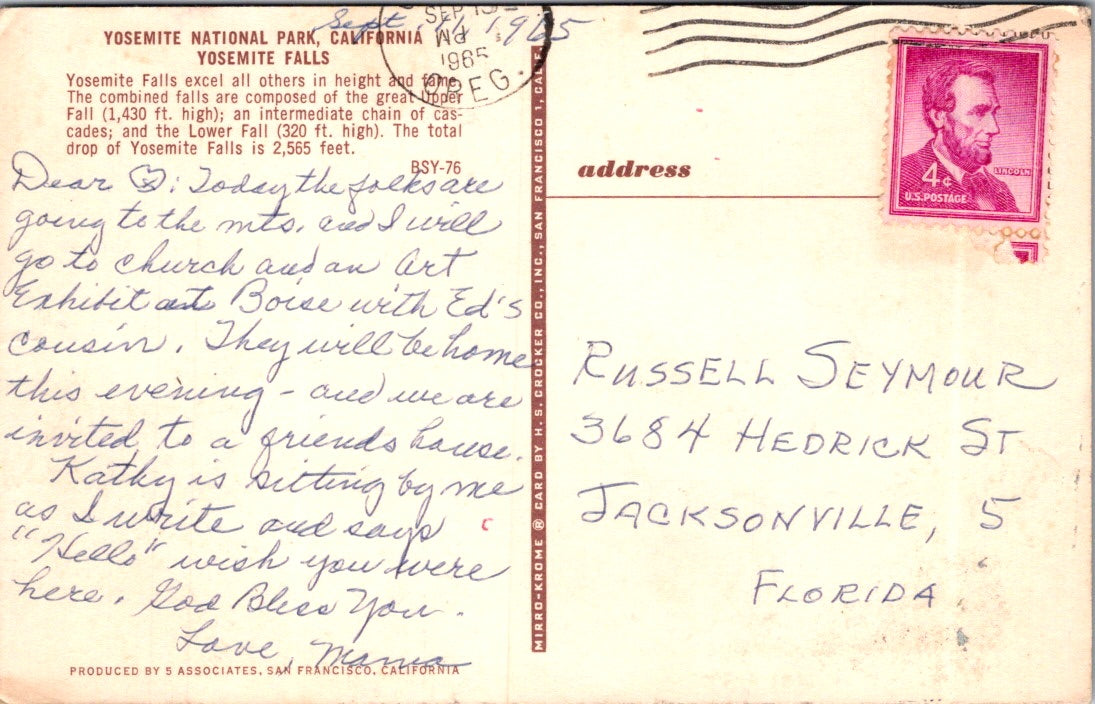 Sept. 1965
YOSEMITE NATIONAL PARK, CALIFORNIA
YOSEMITE FALLS
Yosemite Falls excel all others in height and fame.
The combined falls are composed of the great Upper
Fall (1,430 ft. high); an intermediate chain of cas-
cades; and the Lower Fall (320 ft. high). The total
drop of Yosemite Falls is 2,565 feet.
BSY-76
SEP
1965
OREG.
Dear : Today the folks are
going to the mts. and I will
go to church and an Art
Exhibit at Boise with Ed's
cousin. They will be home
this evening - and we are
invited to a friends house.
Kathy is sitting by me
as I write and says
"Hello" wish you were
here. God Bless You.
Love, Mama
PRODUCED BY 5 ASSOCIATES, SAN FRANCISCO, CALIFORNIA
MIRRO-KROME ® CARD BY H. S. CROCKER CO., INC., SAN FRANCISCO 1, CALIF.
address
4¢
LINCOLN
U.S. POSTAGE
RUSSELL SEYMOUR
3684 HEDRICK ST
JACKSONVILLE, 5
FLORIDA